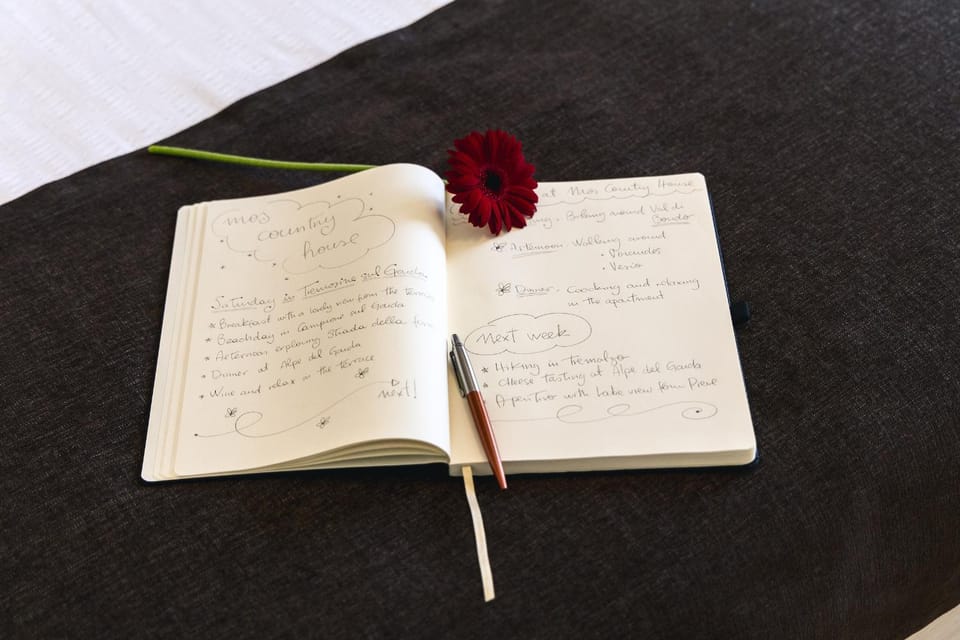 mos
country
house
Saturday in Tremosine sul Garda
* Breakfast with a lovely view from the terrace
* Beachday in Campione sul Garda
* Afternoon exploring Strada della forra
* Dinner at Alpe del Garda
* Wine and relax on the terrace
next!
at Mos Country House
Biking around Val di
Bondo
Afternoon. Walking around
• Voiandes
• Vesio
Dinner. Coocking and relaxing
in the apartment
Next week
* Hiking in Tremalzo
* Cheese tasting at Alpe del Garda
* Aperitivo with Lake view from Pieve